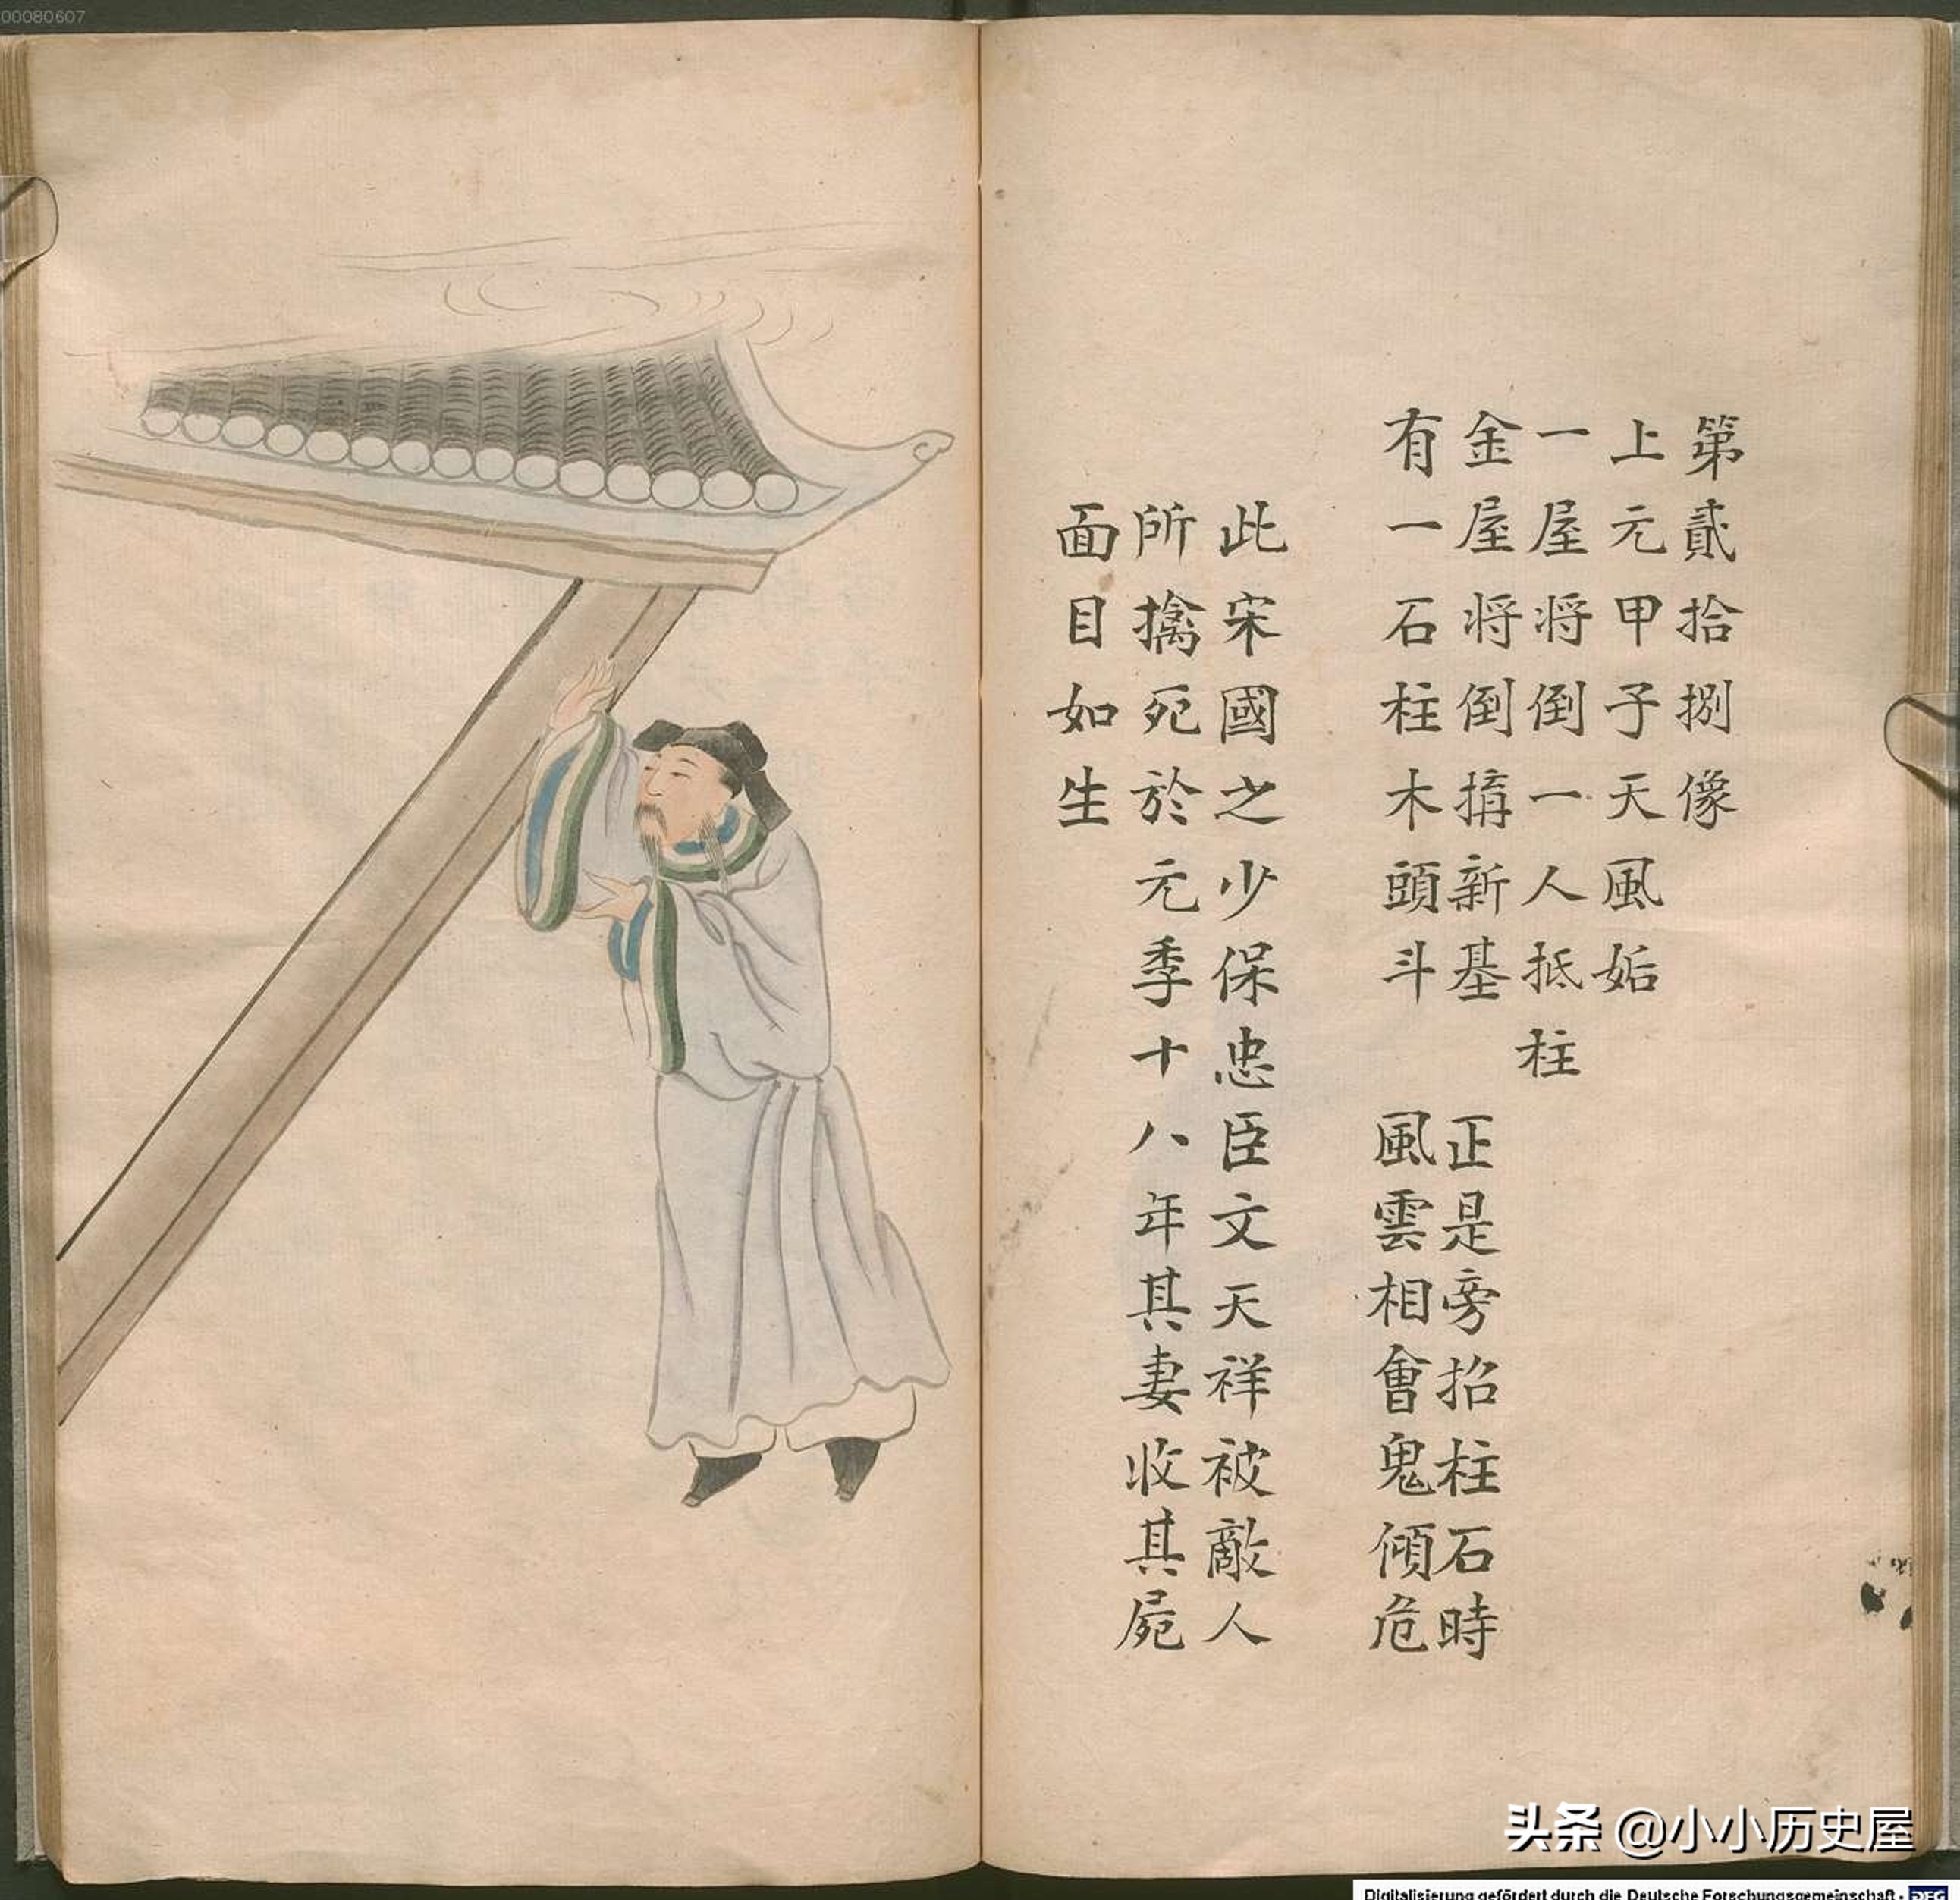 00080607
第貳拾捌像
上元甲子天風姤
一屋將倒一人抵柱
金屋將倒搆新基 正是旁招柱石時
有一石柱木頭斗 風雲相會鬼傾危
此宋國之少保忠臣文天祥被敵人
所擒死於元季十八年其妻收其屍
面目如生
头条 @小小历史屋
Digitalisierung gefördert durch die Deutsche Forschungsgemeinschaft - DFG